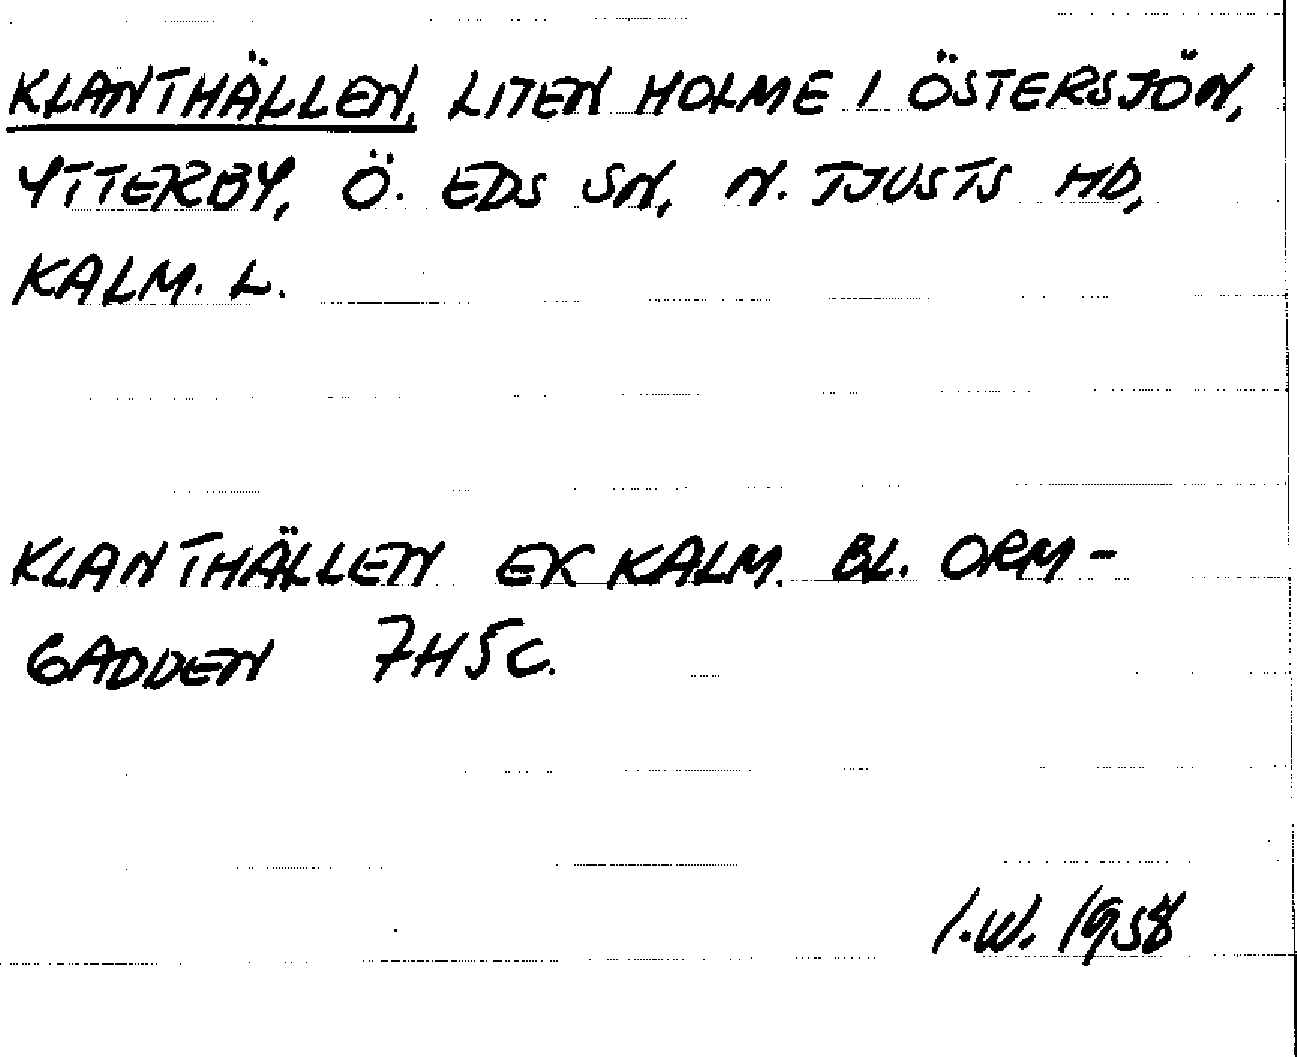 KLANTHÄLLEN, LITEN HOLME I ÖSTERSJÖN,
YTTERBY, Ö. EDS SN, N. TJUSTS HD,
KALM. L.
KLANTHÄLLEN EK KALM. BL. ORM-
GADDEN 7H5C.
I.W. 1958